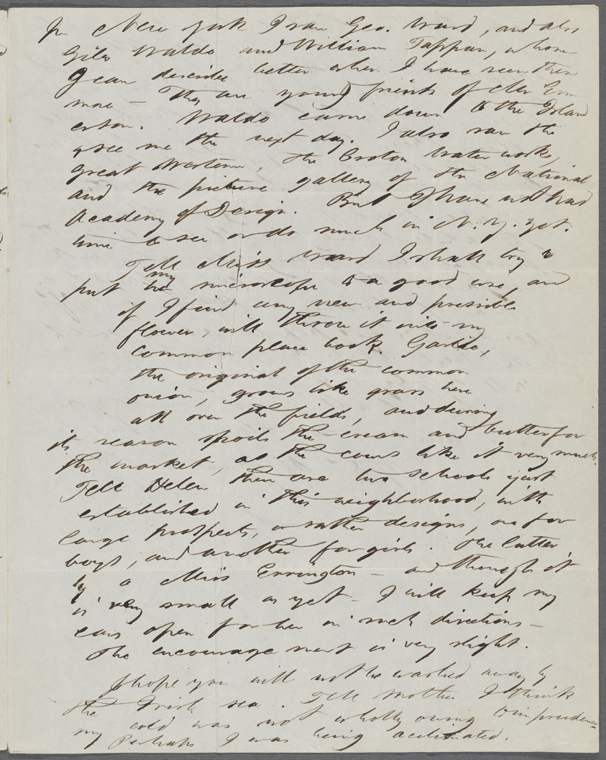 In New York I saw Geo. Ward, and also
Giles Waldo and William Tappan, whom
I can describe better when I have seen them
more — They are young friends of Mr Em
erson. Waldo came down to the Island
to see me the next day. I also saw the
great Western, the Croton water works,
and the picture gallery of the National
Academy of Design. But I have not had
time to see or do much in N. Y. yet.
Tell Miss Ward I shall try to
put my microscope to a good use, and
if I find any new and pressible
flower, will throw it into my
common place book. Garlic,
the original of the common
onion, grows like grass here
all over the fields, and during
its season spoils the cream and butter for
the market, as the cows like it very much.
Tell Helen there are two schools just
established in this neighborhood, with
large prospects, or rather designs, one for
boys, and another for girls. The latter
by a Miss Errington — and though it
is very small as yet — I will keep my
ears open for her in such directions —
The encouragement is very slight.
I hope you will not be washed away by
the Irish sea. Tell Mother I think
my cold was not wholly owing to imprudence
Perhaps I was being acclimated.